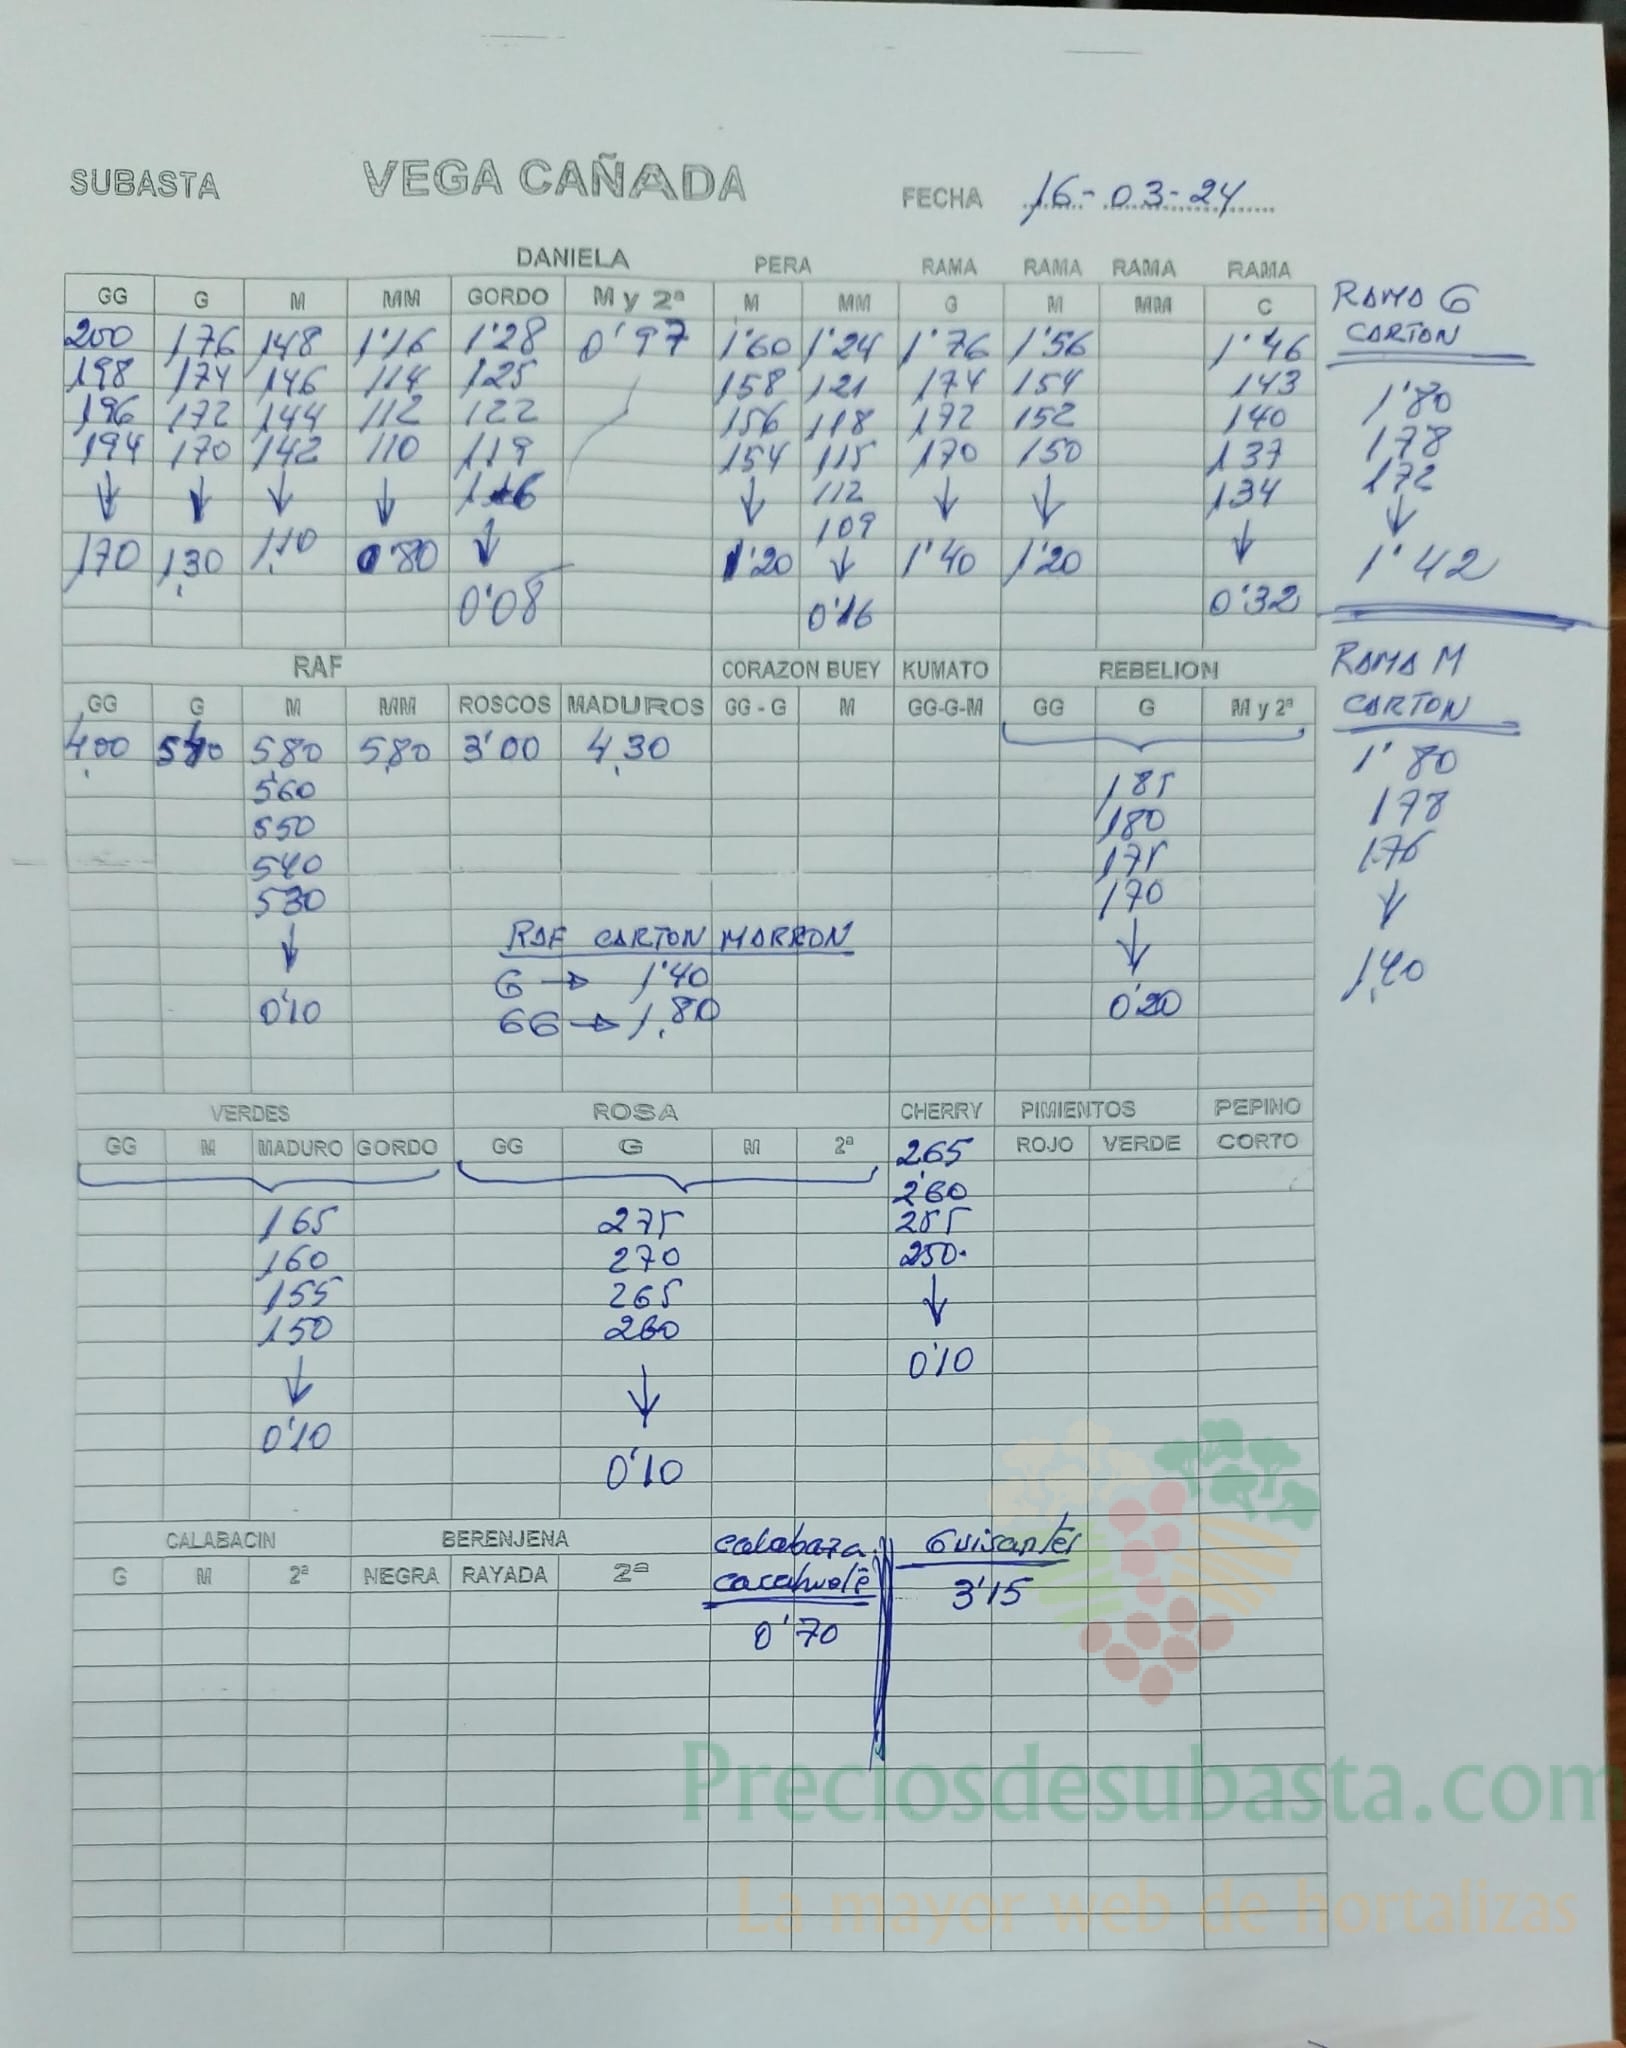 SUBASTA VEGA CAÑADA FECHA 16-03-24
DANIELA PERA RAMA RAMA RAMA RAMA
GG G M MM GORDO M y 2ª M MM G M MM C
200 176 148 1'16 1'28 0'97 1'60 1'24 1'76 1'56 1'46
198 174 146 114 125 158 121 174 154 143
196 172 144 112 122 156 118 172 152 140
194 170 142 110 119 154 115 170 150 137
↓ ↓ ↓ ↓ 116 ↓ 112 ↓ ↓ 134
109
170 1,30 1,10 0'80 ↓ 1'20 ↓ 1'40 1'20 ↓
0'08 0'16 0'32
RAMA G
CARTON
1'80
178
172
↓
1'42
RAF CORAZON BUEY KUMATO REBELION
GG G M MM ROSCOS MADUROS GG - G M GG-G-M GG G M y 2ª
400 580 580 3'00 4,30
560 185
550 180
540 175
530 170
↓ ↓
0'10 0'20
RAF CARTON MARRON
G → 1'40
GG → 1,80
RAMA M
CARTON
1'80
178
176
↓
1,40
VERDES ROSA CHERRY PIMIENTOS PEPINO
GG M MADURO GORDO GG G M 2ª 265 ROJO VERDE CORTO
260
165 275 255
160 270 250.
155 265 ↓
150 260
↓ ↓ 0'10
0'10
0'10
CALABACIN BERENJENA calabaza Guisantes
G M 2ª NEGRA RAYADA 2ª cacahuete 3'15
0'70
Preciosdesubasta.com
La mayor web de hortalizas